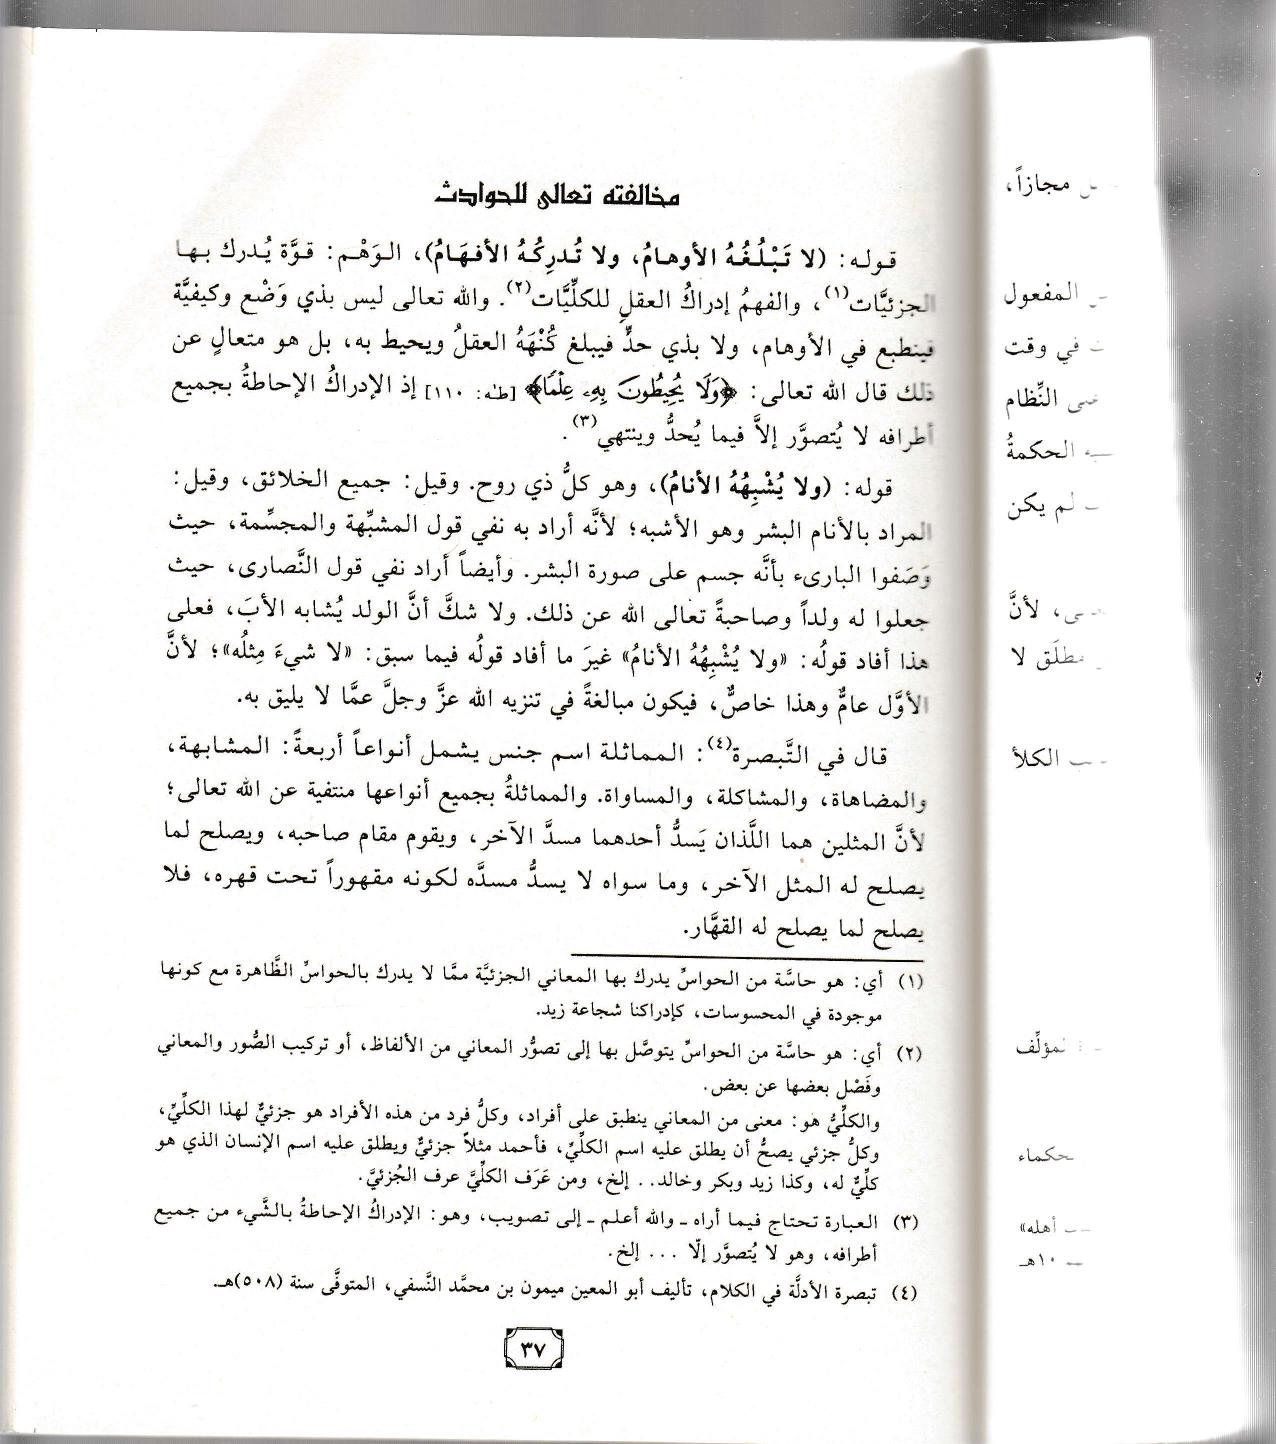 مخالفته تعالى للحوادث
قوله: (لا تَبْلُغُهُ الأوهامُ، ولا تُدرِكُهُ الأفهَامُ)، الوَهْم: قوَّة يُدرك بها
الجزئيَّات(١)، والفهمُ إدراكُ العقلِ للكلِّيَّات(٢). والله تعالى ليس بذي وَضْع وكيفيَّة
فينطبع في الأوهام، ولا بذي حدٍّ فيبلغ كُنْهَهُ العقلُ ويحيط به، بل هو متعالٍ عن
ذلك قال الله تعالى: ﴿وَلَا يُحِيطُونَ بِهِۦ عِلْمًا﴾ [طه: ١١٠] إذ الإدراكُ الإحاطةُ بجميع
أطرافه لا يُتصوَّر إلاَّ فيما يُحدُّ وينتهي(٣).
قوله: (ولا يُشْبِهُهُ الأنامُ)، وهو كلُّ ذي روح. وقيل: جميع الخلائق، وقيل:
المراد بالأنام البشر وهو الأشبه؛ لأنَّه أراد به نفي قول المشبِّهة والمجسِّمة، حيث
وَصَفوا البارىء بأنَّه جسم على صورة البشر. وأيضاً أراد نفي قول النَّصارى، حيث
جعلوا له ولداً وصاحبةً تعالى الله عن ذلك. ولا شكَّ أنَّ الولد يُشابه الأبَ، فعلى
هذا أفاد قولُه: «ولا يُشْبِهُهُ الأنامُ» غيرَ ما أفاد قولُه فيما سبق: «لا شيءَ مِثلُه»؛ لأنَّ
الأوَّل عامٌّ وهذا خاصٌّ، فيكون مبالغةً في تنزيه الله عزَّ وجلَّ عمَّا لا يليق به.
قال في التَّبصرة(٤): المماثلة اسم جنس يشمل أنواعاً أربعةً: المشابهة،
والمضاهاة، والمشاكلة، والمساواة. والمماثلةُ بجميع أنواعها منتفية عن الله تعالى؛
لأنَّ المثلين هما اللَّذان يَسدُّ أحدهما مسدَّ الآخر، ويقوم مقام صاحبه، ويصلح لما
يصلح له المثل الآخر، وما سواه لا يسدُّ مسدَّه لكونه مقهوراً تحت قهره، فلا
يصلح لما يصلح له القهَّار.
(١) أي: هو حاسَّة من الحواسِّ يدرك بها المعاني الجزئيَّة ممَّا لا يدرك بالحواسِّ الظَّاهرة مع كونها
موجودة في المحسوسات، كإدراكنا شجاعة زيد.
(٢) أي: هو حاسَّة من الحواسِّ يتوصَّل بها إلى تصوُّر المعاني من الألفاظ، أو تركيب الصُّور والمعاني
وفَصْل بعضها عن بعض.
والكلِّيُّ هو: معنى من المعاني ينطبق على أفراد، وكلُّ فرد من هذه الأفراد هو جزئيٌّ لهذا الكلِّيِّ،
وكلُّ جزئي يصحُّ أن يطلق عليه اسم الكلِّيِّ، فأحمد مثلاً جزئيٌّ ويطلق عليه اسم الإنسان الذي هو
كلِّيٌّ له، وكذا زيد وبكر وخالد.. إلخ، ومن عَرَف الكلِّيَّ عرف الجُزئيَّ.
(٣) العبارة تحتاج فيما أراه ـ والله أعلم ـ إلى تصويب، وهو: الإدراكُ الإحاطةُ بالشَّيء من جميع
أطرافه، وهو لا يُتصوَّر إلّا ... إلخ.
(٤) تبصرة الأدلَّة في الكلام، تأليف أبو المعين ميمون بن محمَّد النَّسفي، المتوفَّى سنة (٥٠٨)هـ.
٣٧
مجازاً،
المفعول
في وقت
النِّظام
الحكمةُ
لم يكن
لأنَّ
مطلَق لا
الكلأ
أهله»